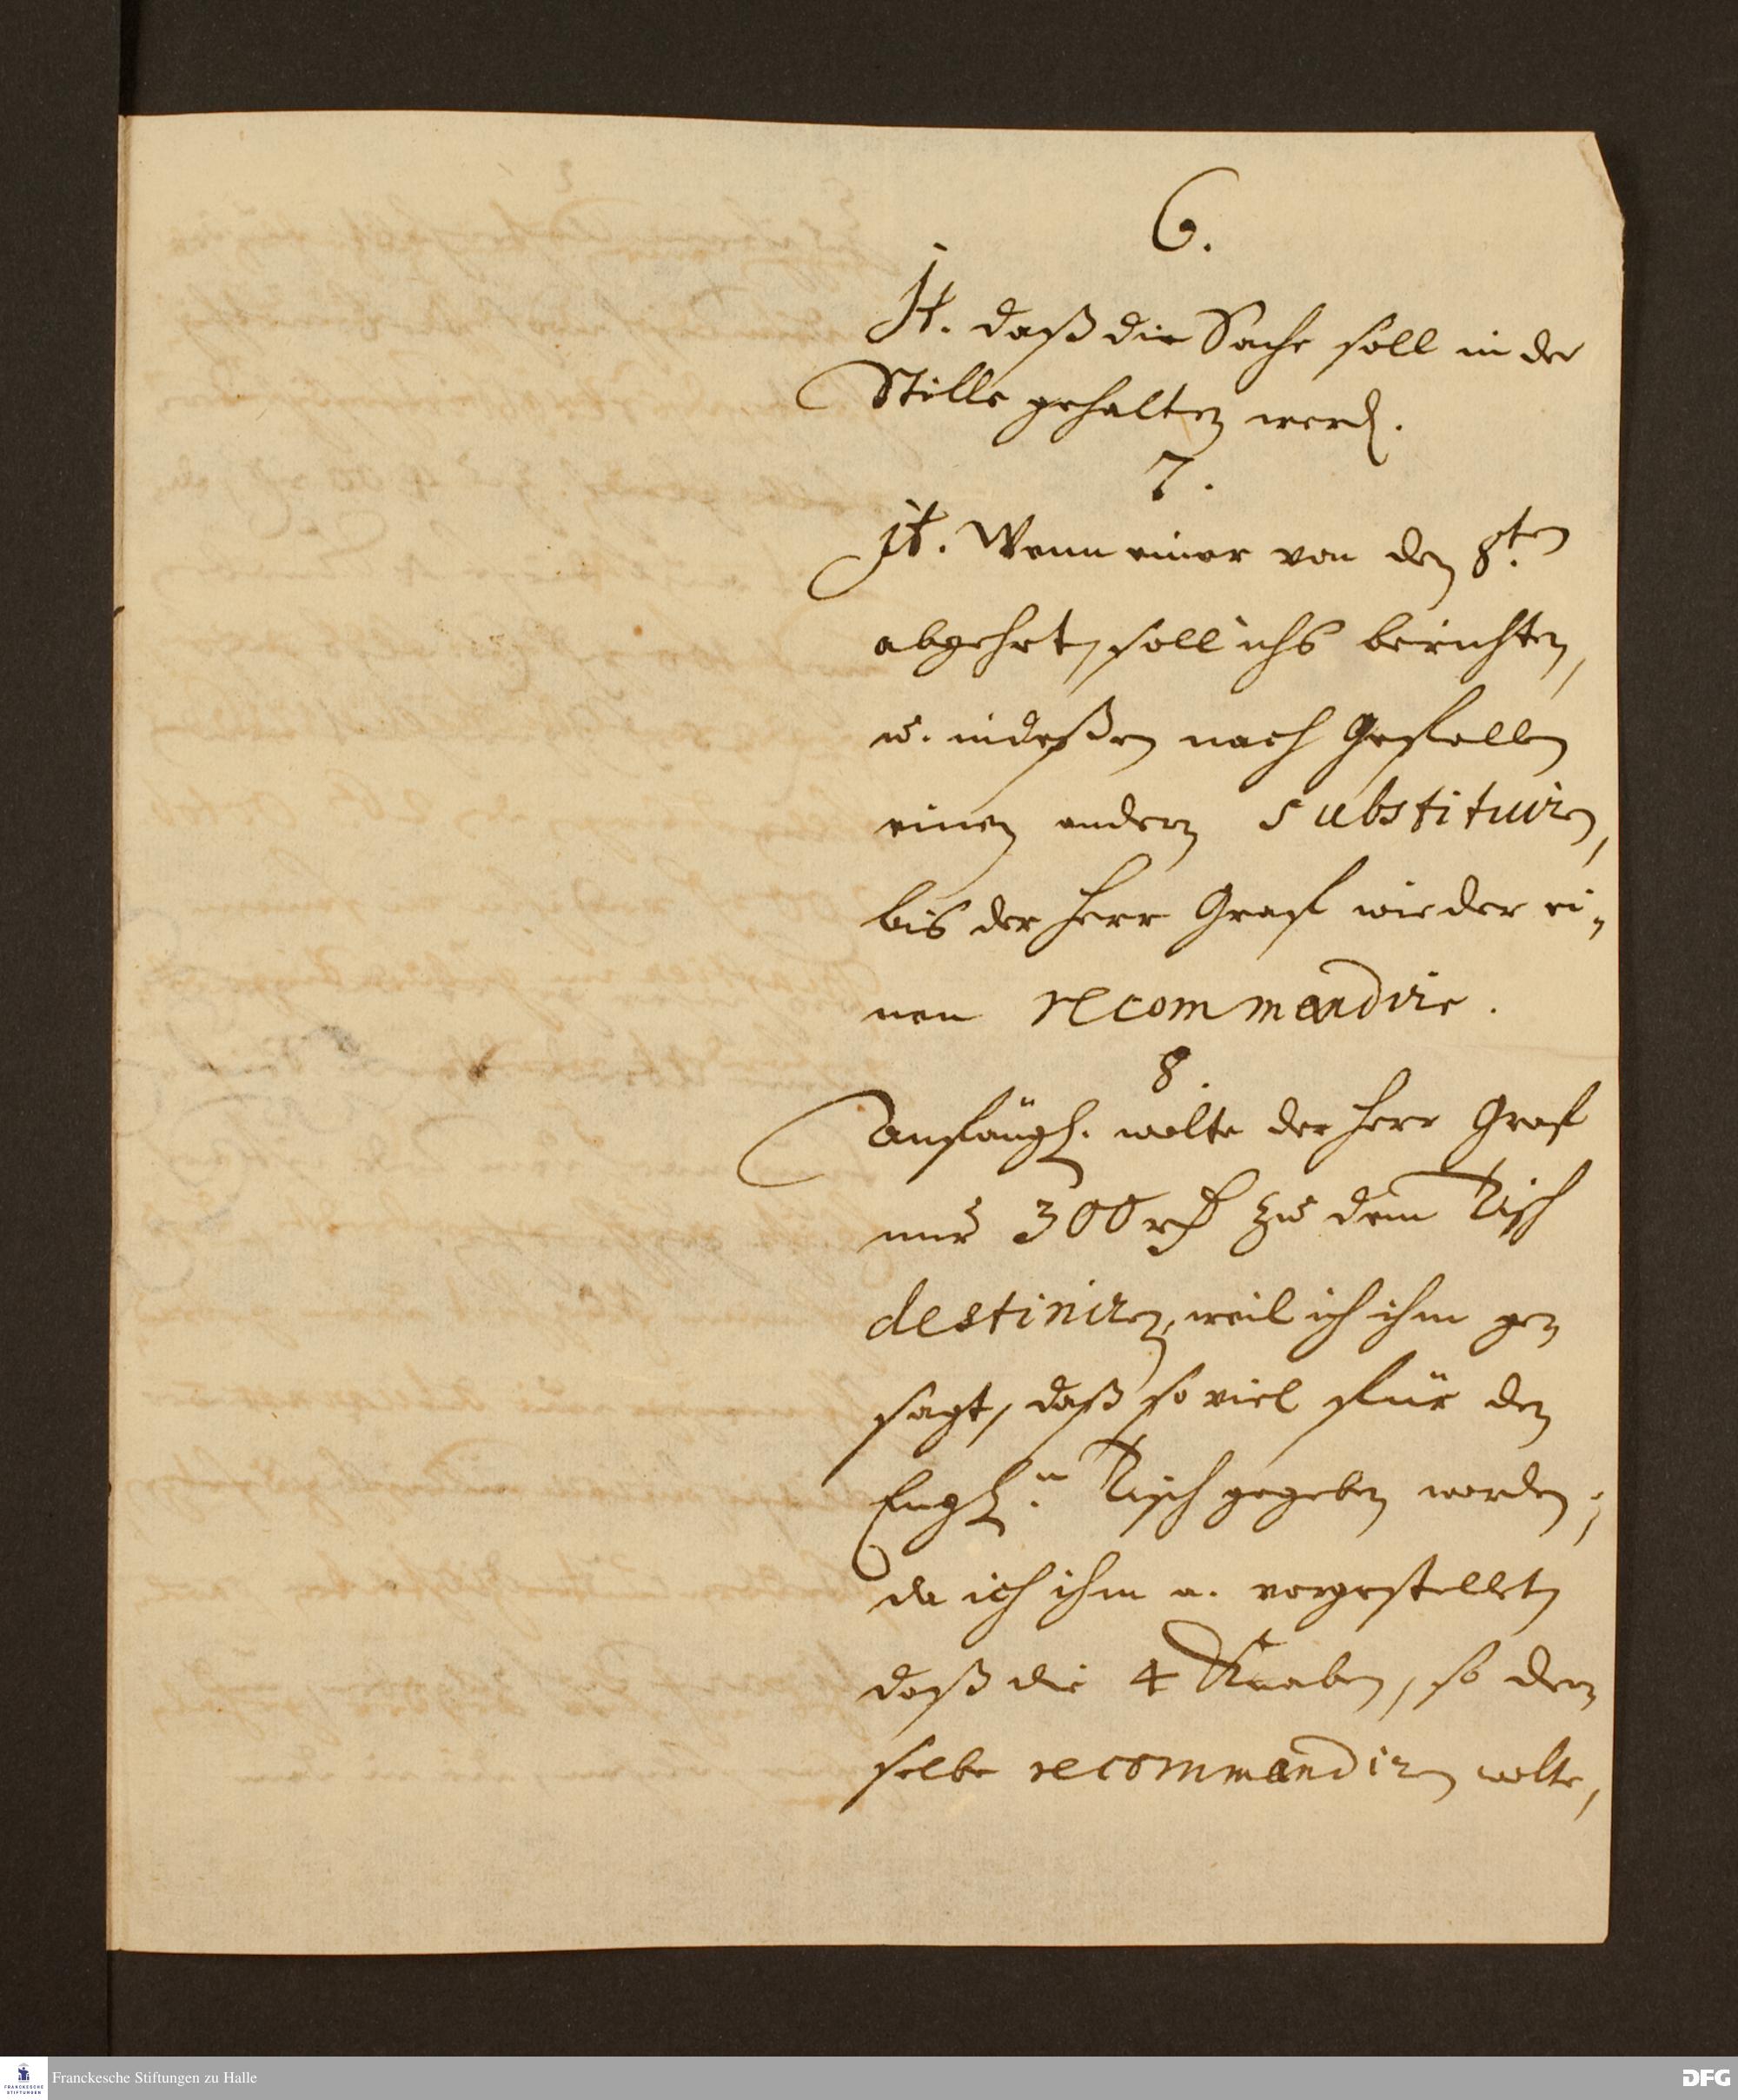 6.
It. daß die Sache soll in der
Stille gehalten werd.
7.
It. Wenn einer von den 8ten
abgehet, soll ichs berichten,
u. indeßen nach Gefallen
einen andern substituiren,
bis der Herr Graf wieder ei-
nen recommandire.
8.
Anfängl. wolte der Herr Graf
nur 300 rth zu dem Tisch
destiniren, weil ich ihm ge-
sagt, daß so viel für den
Engl.n Tisch gegeben worden;
da ich ihm a. vorgestellet,
daß die 4 Knaben, so der-
selbe recommandiren wolte,
Franckesche Stiftungen zu Halle
FRANCKESCHE
STIFTUNGEN
DFG